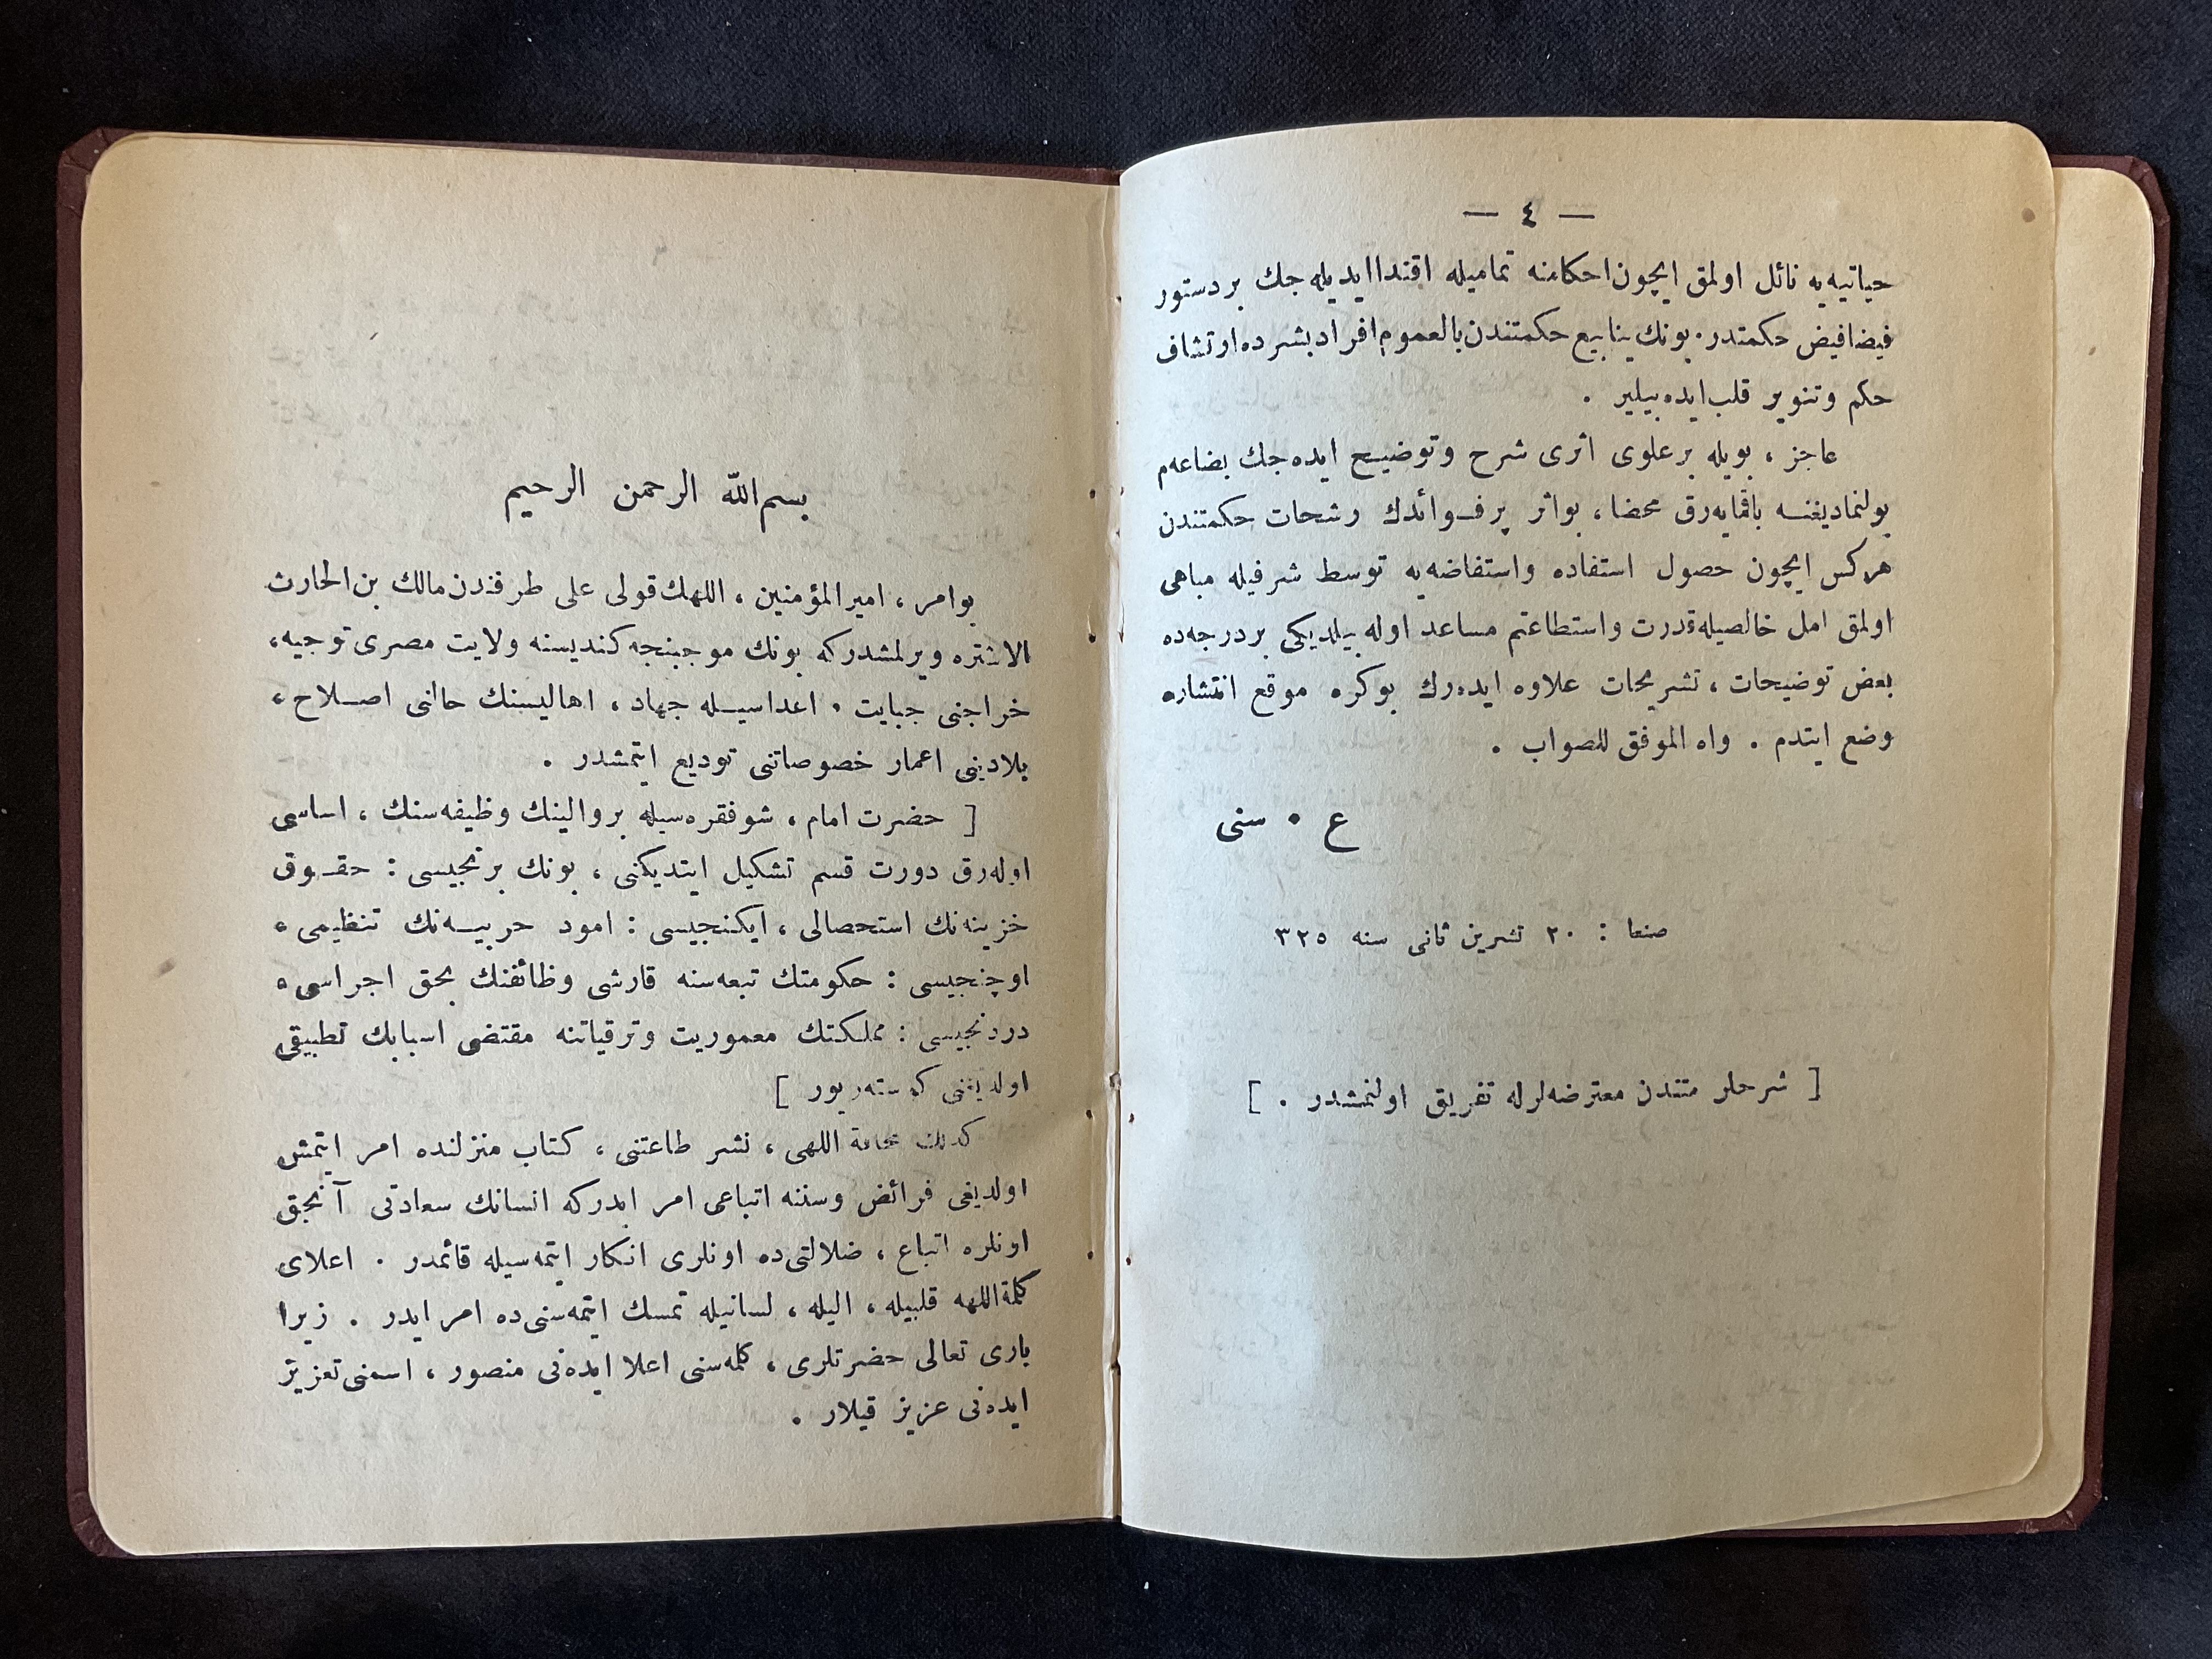 — ٤ —
حیاتیه‌یه نائل اولمق ایچون احکامنه تمامیله اقتدا ایدیله جك بر دستور
فیضافیض حکمتدر. بونك ینابیع حکمتندن بالعموم افراد بشرده ارتشاف
حکم وتنویر قلب ایده بیلیر .
عاجز ، بویله بر علوی اثری شرح وتوضیح ایده جك بضاعه‌م
بولنمادیغنه باقمایه‌رق محضا ، بو اثر پر فوائدك رشحات حکمتندن
هرکس ایچون حصول استفاده واستفاضه‌یه توسط شرفیله مباهی
اولمق امل خالصیله قدرت واستطاعتم مساعد اوله بیلدیکی بر درجه‌ده
بعض توضیحات ، تشریحات علاوه ایده‌رك بو کره موقع انتشاره
وضع ایتدم . واه الموفق للصواب .
ع . سنی
صنعا : ٢٠ تشرین ثانی سنه ٣٢٥
[ شرحلر متندن معترضه‌لرله تفریق اولنمشدر . ]
بسم الله الرحمن الرحیم
بو امر ، امیر المؤمنین ، اللهك قولی علی طرفندن مالك بن الحارث
الاشتره ویرلمشدرکه بونك موجبنجه کندیسنه ولایت مصری توجیه،
خراجنی جبایت ، اعداسیله جهاد ، اهالیسنك حالنی اصلاح ،
بلادینی اعمار خصوصاتنی تودیع ایتمشدر .
[ حضرت امام ، شو فقره‌سیله بر والینك وظیفه‌سنك ، اساسی
اوله‌رق دورت قسم تشکیل ایتدیکنی ، بونك برنجیسی : حقوق
خزینه‌نك استحصالی ، ایکنجیسی : امود حربیه‌نك تنظیمی ،
اوچنجیسی : حکومتك تبعه‌سنه قارشی وظائفنك بحق اجراسی ،
دردنجیسی : مملکتك معموریت وترقیاتنه مقتضی اسبابك تطبیقی
اولدیغنی کوسته‌ریور ]
کذلك مخافة اللهی ، نشر طاعتنی ، کتاب منزلنده امر ایتمش
اولدیغی فرائض وسننه اتباعی امر ایدرکه انسانك سعادتی آنجق
اونلره اتباع ، ضلالتی‌ده اونلری انکار ایتمه‌سیله قائمدر . اعلای
کلمة اللهه قلبیله ، الیله ، لسانیله تمسك ایتمه‌سنی‌ده امر ایدر . زیرا
باری تعالی حضرتلری ، کلمه‌سنی اعلا ایده‌نی منصور ، اسمنی تعزیز
ایده‌نی عزیز قیلار .